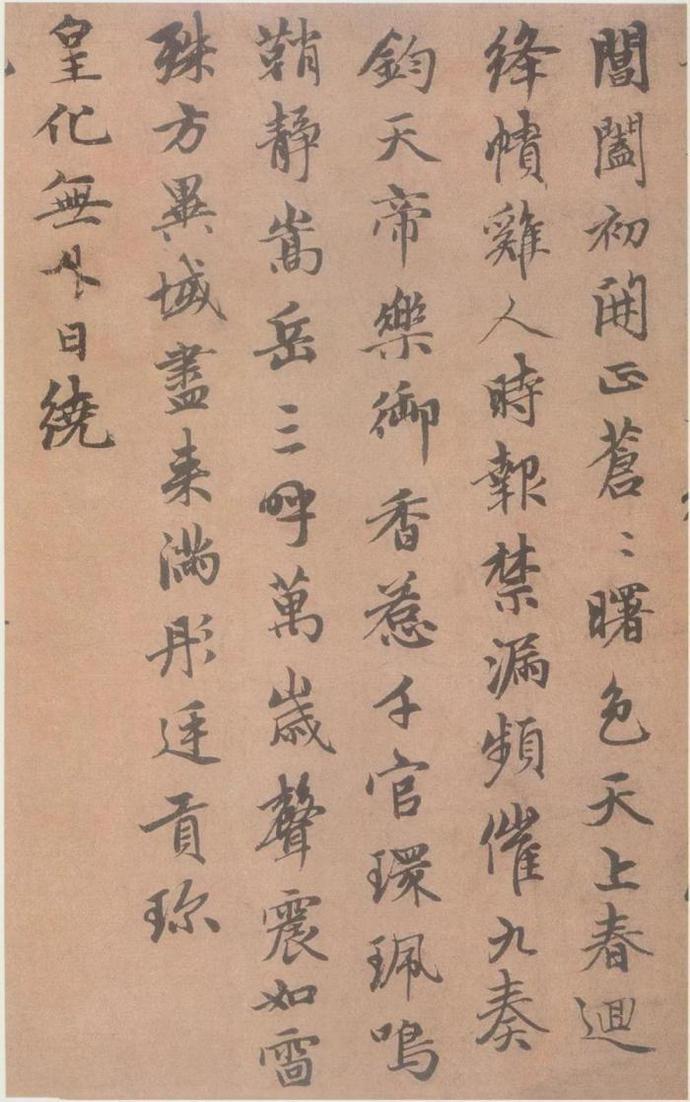 閶闔初開正蒼〻曙色天上春迴
絳幘雞人時報禁漏頻催九奏
鈞天帝樂御香惹千官環珮鳴
鞘靜嵩岳三呼萬歲聲震如雷
殊方異域盡来滿彤廷貢珍
皇化無外日繞